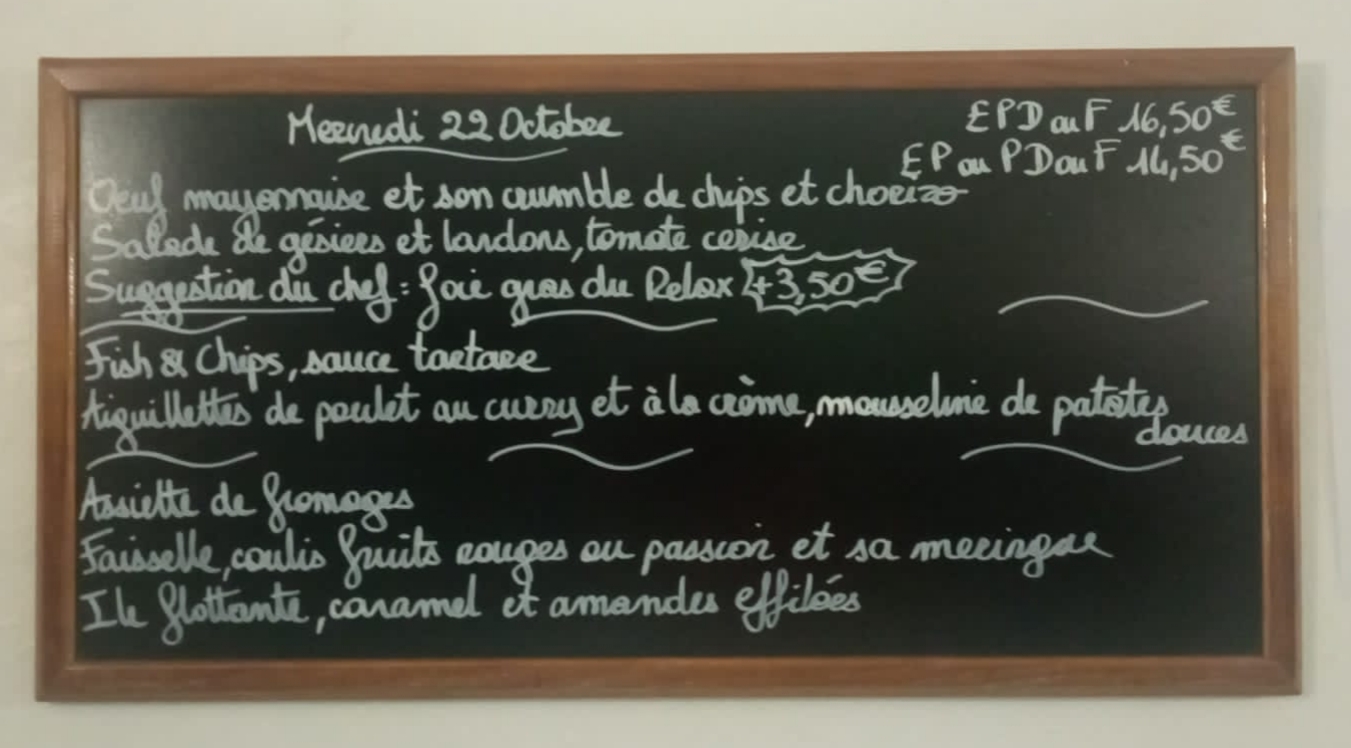 Mercredi 22 Octobre
EPD ou F 16,50€
EP ou PD ou F 14,50€
Oeuf mayonnaise et son crumble de chips et chorizo
Salade de gésiers et lardons, tomate cerise
Suggestion du chef : foie gras du Relax +3,50€
Fish & Chips, sauce tartare
Aiguillettes de poulet au curry et à la crème, mousseline de patates
douces
Assiette de fromages
Faisselle, coulis fruits rouges ou passion et sa meringue
Ile flottante, caramel et amandes effilées